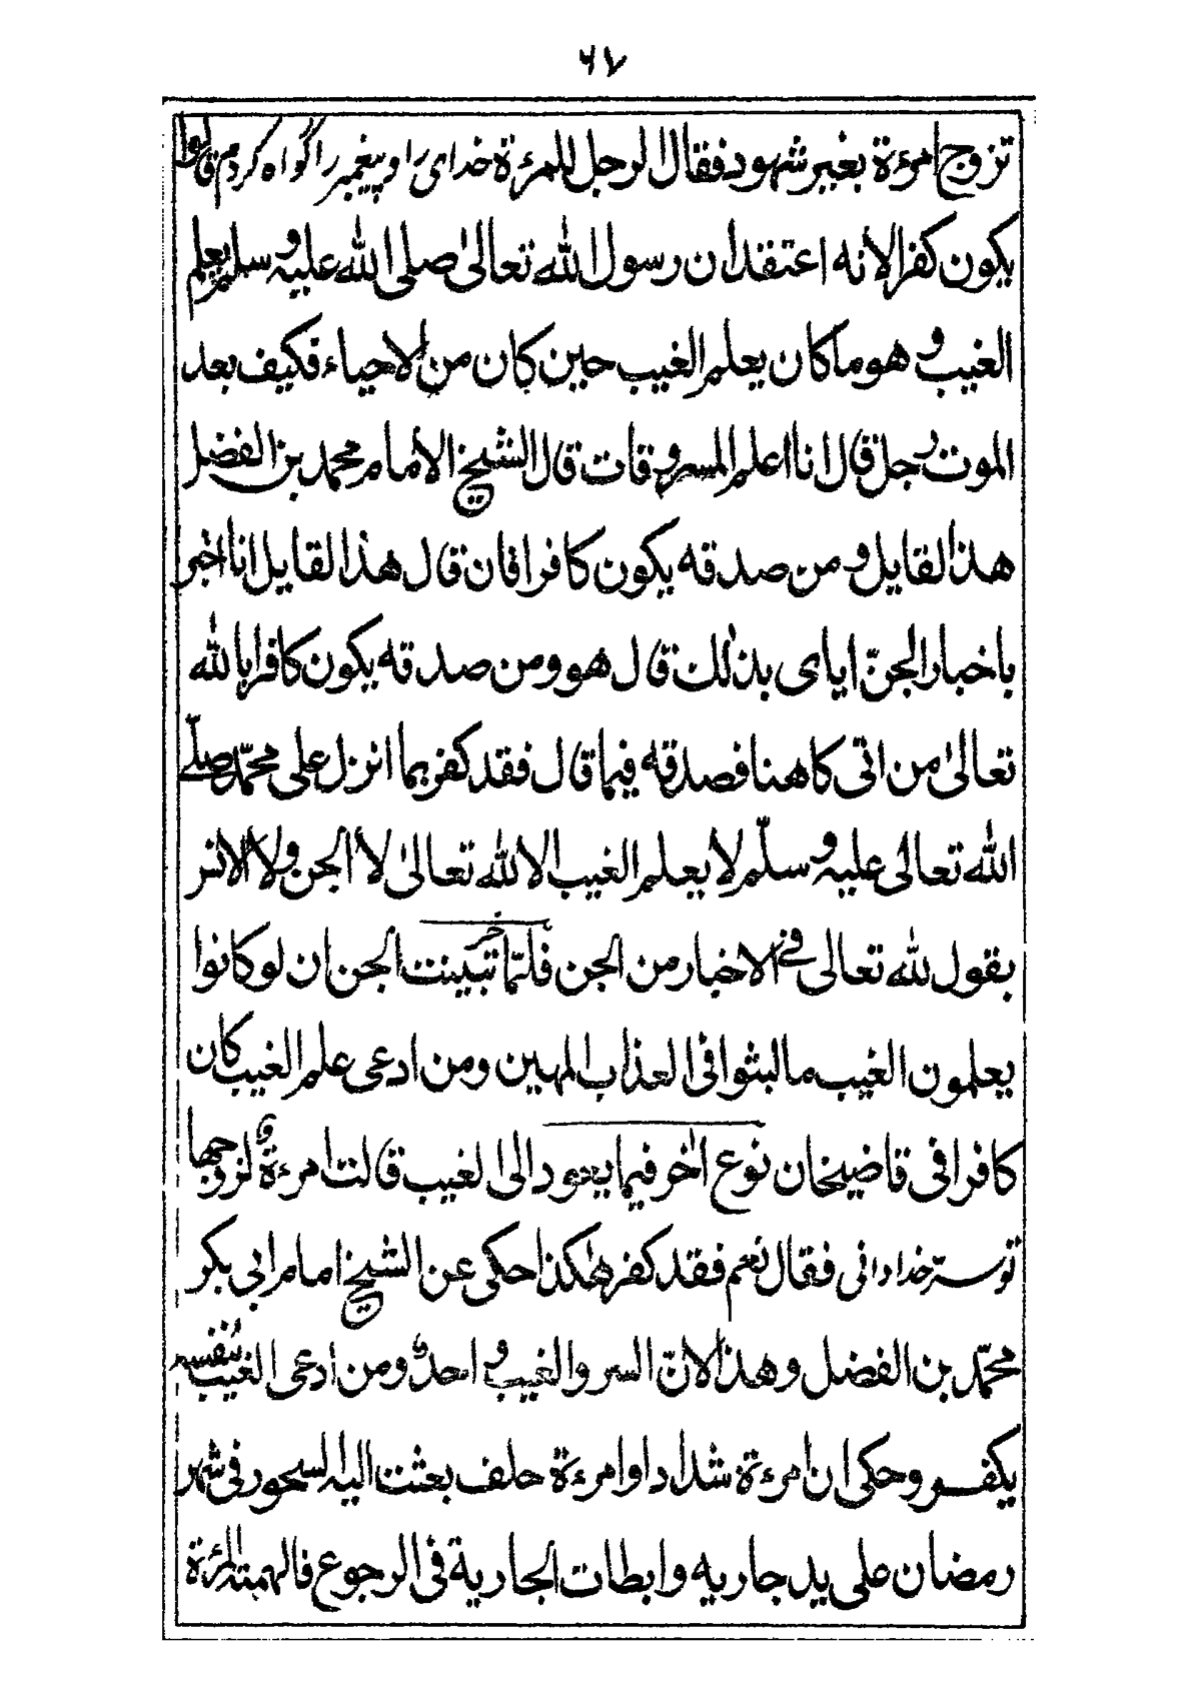 ۶۷
تزوج امرءة بغير شهود فقال الرجل للمرءة خدای را و پیغمبر را گواه کردم قالوا
يكون كفرا لأنه اعتقد ان رسول الله تعالىٰ صلى الله عليه وسلم يعلم
الغيب وهو ما كان يعلم الغيب حين كان من الاحياء فكيف بعد
الموت رجل قال انا اعلم المسروقات قال الشيخ الأمام محمد بن الفضل
هذا القايل و من صدقه يكون كافرا فان قال هذا القايل انا اخبر
باخبار الجنّ اياى بذلك قال هو ومن صدقه يكون كافرا بالله
تعالىٰ من اتى كاهنا فصدقه فيما قال فقد كفر بما انزل على محمّد صلى
الله تعالى عليه وسلّم لا يعلم الغيب الا الله تعالىٰ لا الجن ولا الانس
بقول الله تعالى فى الاخبار من الجن فلمّا خر تبينت الجن ان لو كانوا
يعلمون الغيب ما لبثوا فى العذاب المهين ومن ادعى علم الغيب كان
كافرا فى قاضيخان نوع اٰخر فيما يعود الى الغيب قالت امرءة لزوجها
تو سر خدا دانی فقال نعم فقد كفر هٰكذا حكى عن الشيخ امام ابى بكر
محمّد بن الفضل وهذا لانّ السر والغيب واحد ومن ادعى الغيب لنفسه
يكفر وحكى ان امرءة شداد او امرءة خلف بعثت اليه السحور فى شهر
رمضان على يد جاريه وابطات الجارية فى الرجوع فالهمته المرءة